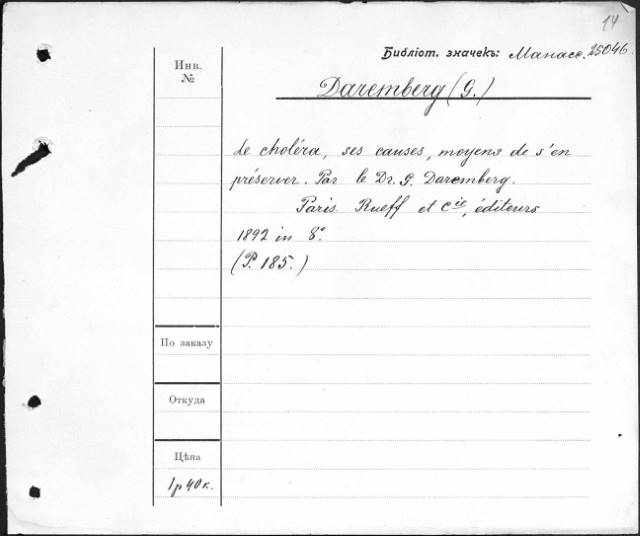 14
Библіот. значекъ: Манасс. 25046.
Инв.
№
Daremberg (G.)
Le choléra, ses causes, moyens de s'en
préserver. Par le Dr. G. Daremberg.
Paris. Rueff et Cie, éditeurs
1892 in 8°.
(P. 185.)
По заказу
Откуда
Цѣна
1 р 40 к.